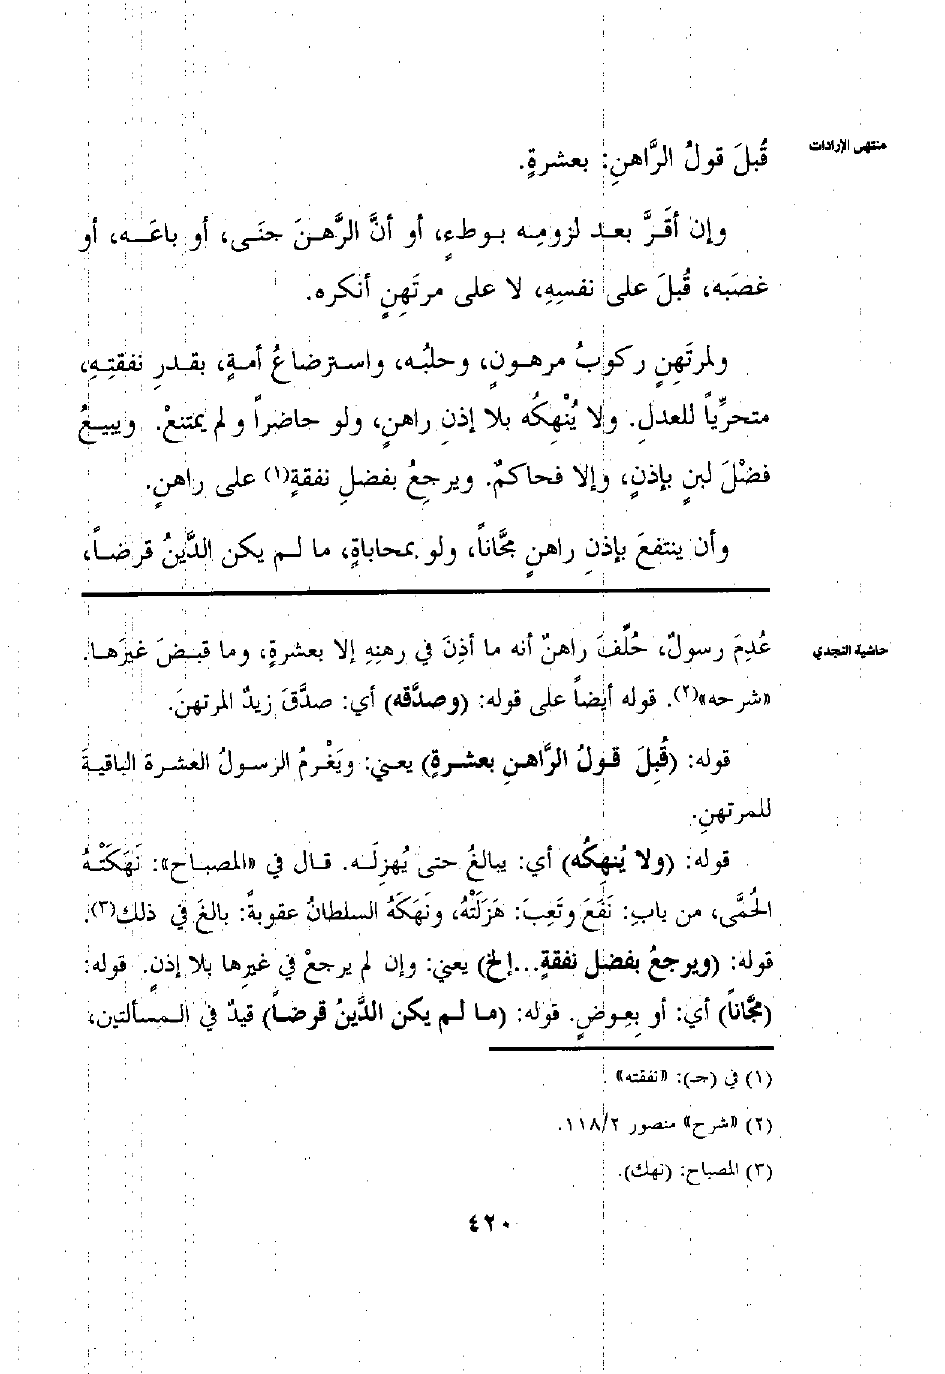 منتهى الإرادات
قُبلَ قولُ الرَّاهنِ: بعشرةٍ.
وإن أقَرَّ بعد لزومِه بوطءٍ، أو أنَّ الرَّهنَ جنَى، أو باعَه، أو
غصَبه، قُبلَ على نفسِهِ، لا على مرتَهِنٍ أنكره.
ولمرتَهِنٍ ركوبُ مرهونٍ، وحلبُه، واسترضاعُ أمةٍ، بقدرِ نفقتِهِ،
متحرِّياً للعدلِ. ولا يُنْهِكُه بلا إذنِ راهنٍ، ولو حاضراً ولم يمتنعْ. ويبيعُ
فضْلَ لبنٍ بإذنٍ، وإلا فحاكمٌ. ويرجعُ بفضلِ نفقةٍ(١) على راهنٍ.
وأن ينتفعَ بإذنِ راهنٍ مجَّاناً، ولو بمحاباةٍ، ما لم يكن الدَّينُ قرضاً،
حاشية النجدي
عُدِمَ رسولٌ، حُلِّفَ راهنٌ أنه ما أذِنَ في رهنِهِ إلا بعشرةٍ، وما قبضَ غيرَها.
«شرحه»(٢). قوله أيضاً على قوله: (وصدَّقه) أي: صدَّقَ زيدٌ المرتهنَ.
قوله: (قُبِلَ قولُ الرَّاهنِ بعشرةٍ) يعني: ويَغْرمُ الرسولُ العشرة الباقيةَ
للمرتهنِ.
قوله: (ولا يُنهِكُه) أي: يبالغُ حتى يُهزِلَه. قال في «المصباح»: نَهَكَتْهُ
الحُمَّى، من بابِ: نَفَعَ وتَعِبَ: هَزَلَتْهُ، ونَهَكَهُ السلطانُ عقوبةً: بالغَ في ذلك(٣).
قوله: (ويرجعُ بفضلِ نفقةٍ...إلخ) يعني: وإن لم يرجعْ في غيرِها بلا إذنٍ. قوله:
(مجَّاناً) أي: أو بِعِوضٍ. قوله: (ما لم يكن الدَّينُ قرضاً) قيدٌ في المسألتين،
(١) في (جـ): «نفقته» .
(٢) «شرح» منصور ١١٨/٢.
(٣) المصباح: (نهك).
٤٢٠